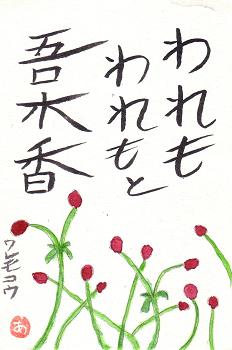 われも
われもと
吾木香
ワレモコウ
あ